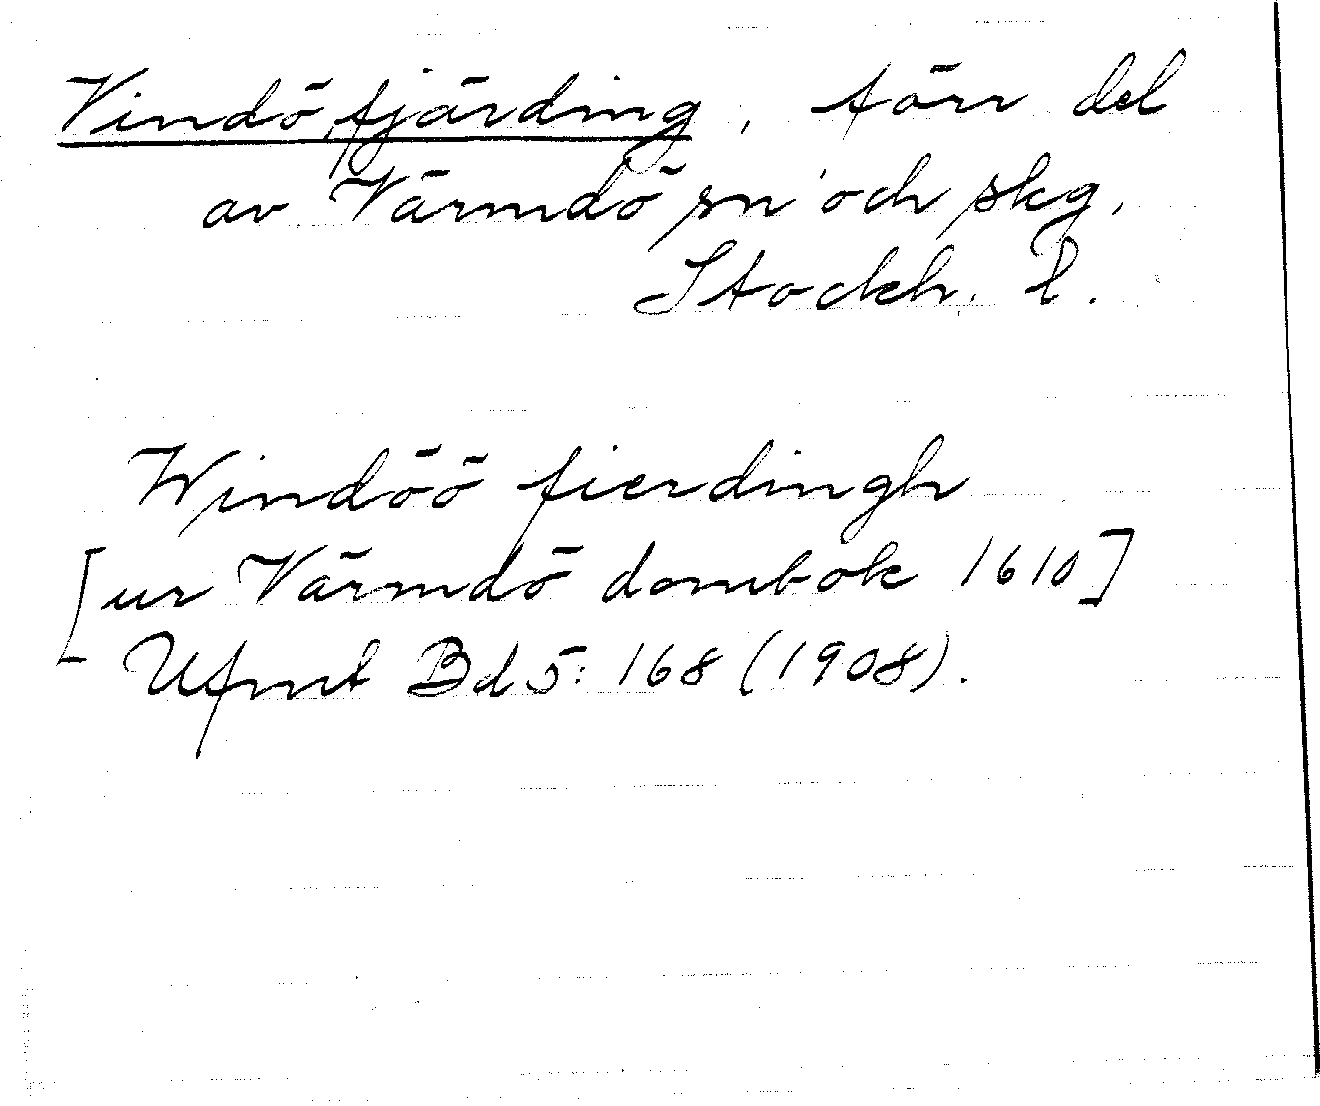 Vindö fjärding, förr del
av Värmdö sn och skg,
Stockh. l.
Windöö fierdingh
[ur Värmdö dombok 1610]
Ufmt Bd 5: 168 (1908).